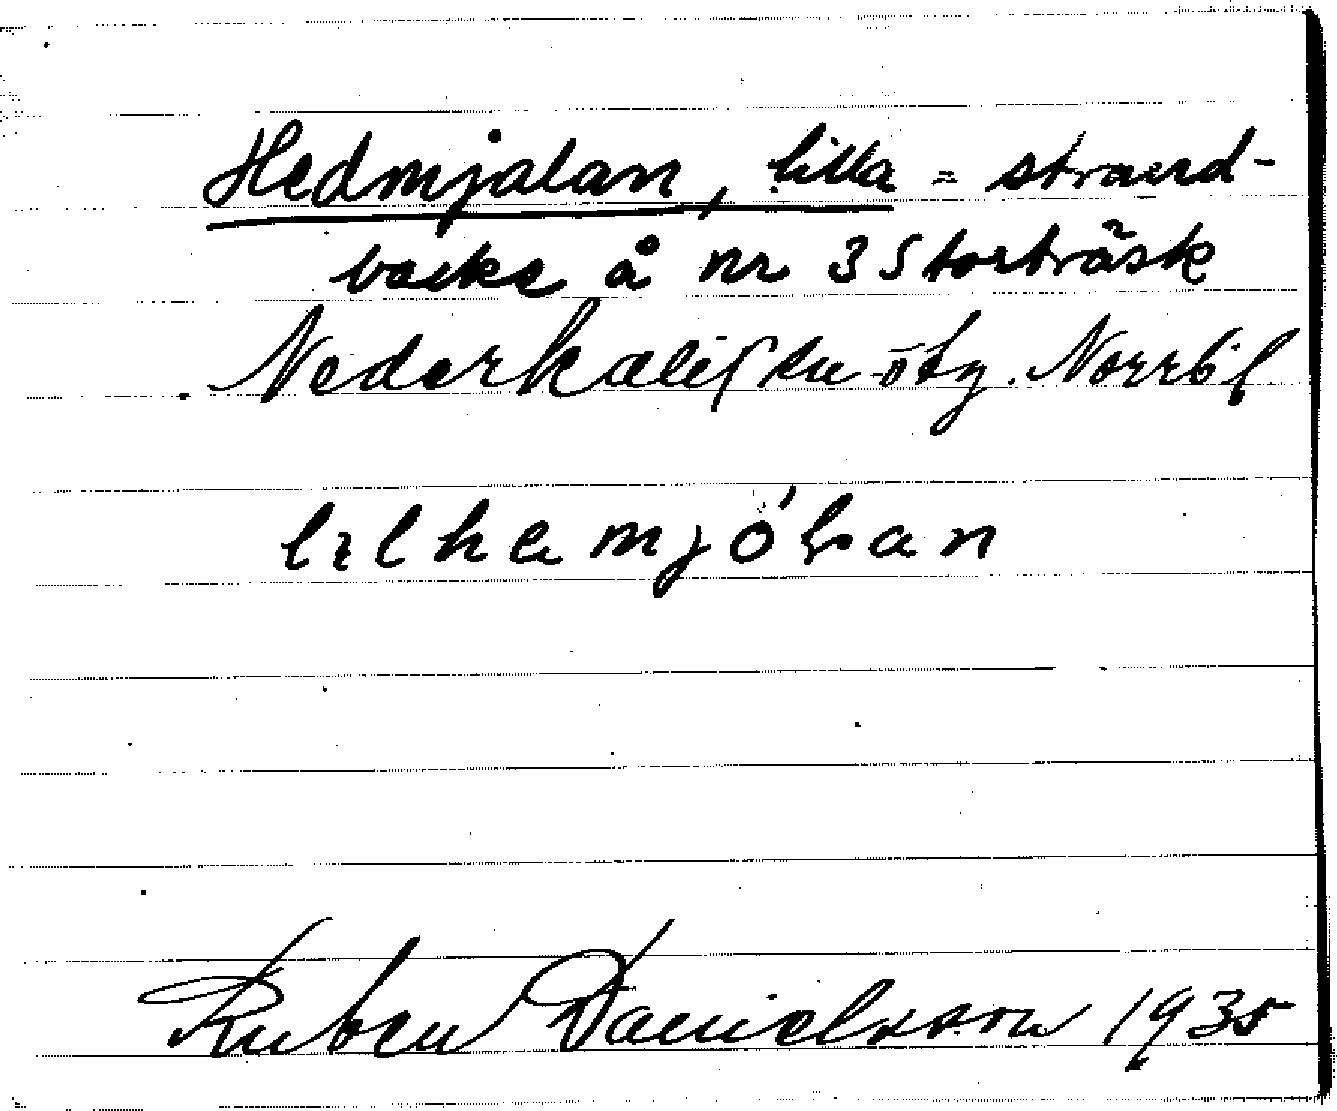 Hedmjalan, lilla = strand-
backe å nr 3 Storträsk
Nederkalix sn ötg. Norrb. l
lılhemjóḷan
Ruben Danielsson 1935